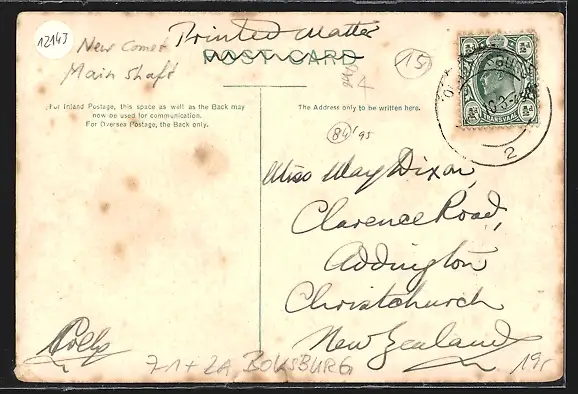 12143
New Comet
Main Shaft
Printed Matter
POST CARD
15
4
For Inland Postage, this space as well as the Back may
now be used for communication.
For Oversea Postage, the Back only.
The Address only to be written here.
84 95
½d ½d
TRANSVAAL
2
Miss May Dixon,
Clarence Road,
Addington
Christchurch
New Zealand
71+2A BOKSBURG